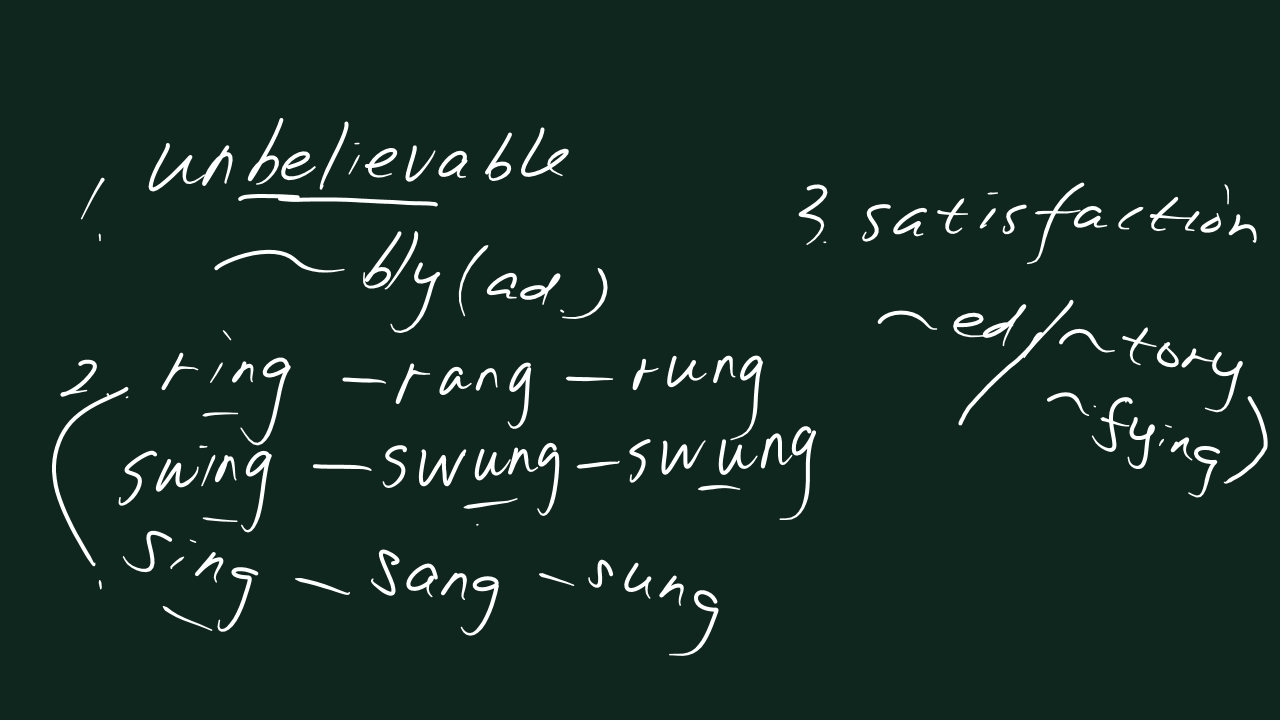 1. unbelievable
~bly (ad.)
2. ring - rang - rung
swing - swung - swung
sing - sang - sung
3. satisfaction
~ed / ~tory
~fying)